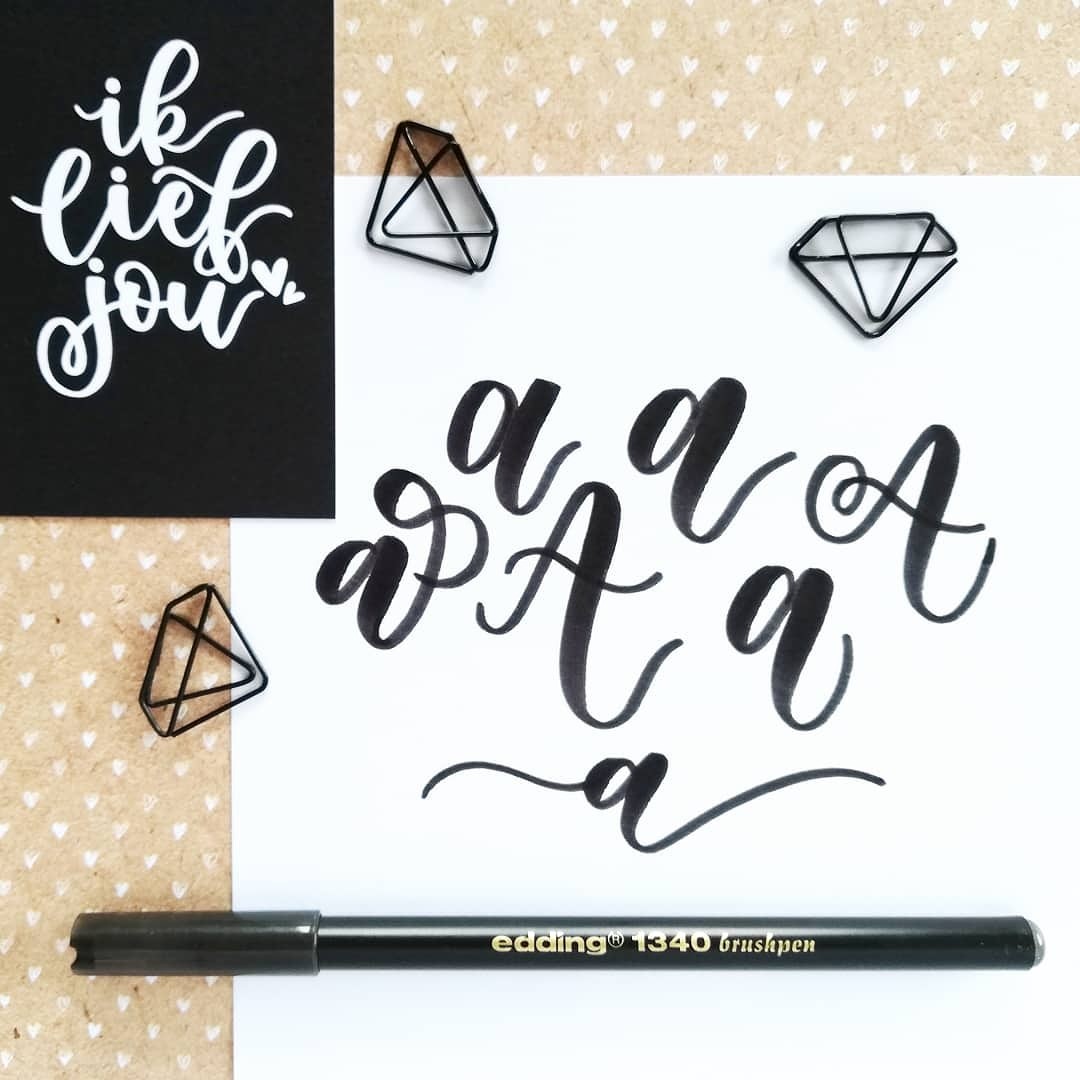 ik
lief
jou
a a A
a A a
a
edding® 1340 brushpen